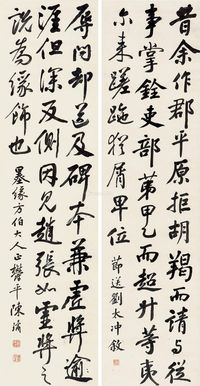 昔余作郡平原拒胡羯而請與從
事掌銓吏部第甲乙而超升等夷
尔来蹉跎猶屑卑位 節送劉太冲敘
辱问却送及碑本兼虚獎逾
涯但深反側因見趙張如獎之
説為緣飾也 墨緣方伯大人正 平陳